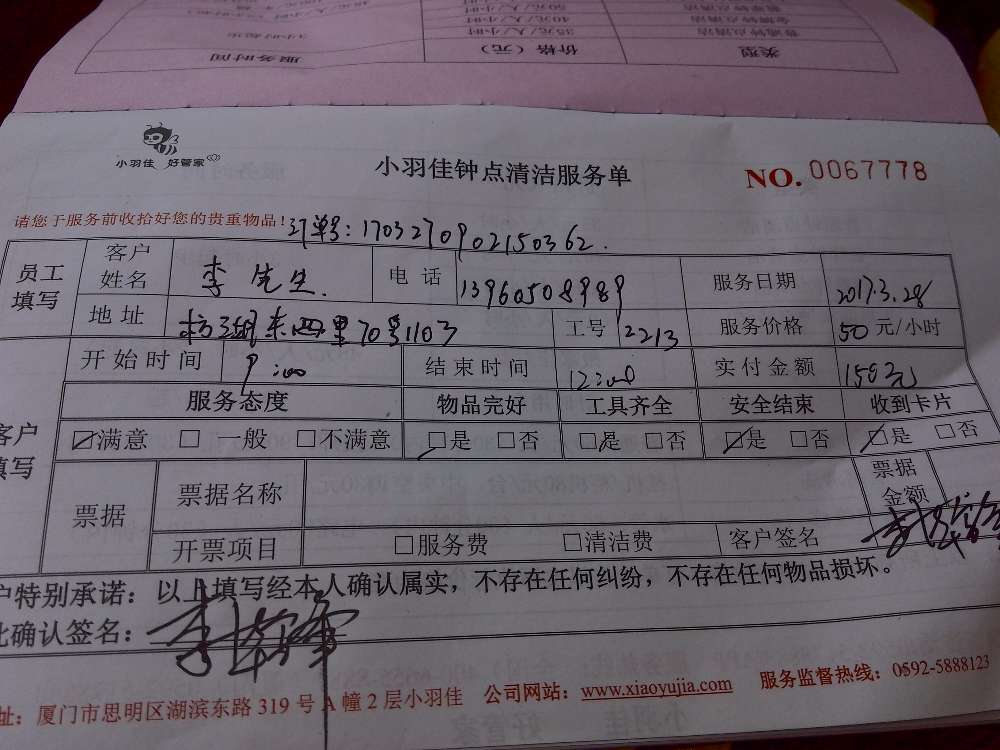 类型 价格（元） 服务时间
35元/人/小时 3小时起步
40元/人/小时
50元/人/小时
小羽佳 好管家
小羽佳钟点清洁服务单
NO. 0067778
请您于服务前收拾好您的贵重物品！订单号：1703270902150362.
员工填写 客户姓名 李先生. 电话 13960508989 服务日期 2017.3.28
地址 东四里70号1103 工号 2213 服务价格 50元/小时
开始时间 9:00 结束时间 12:00 实付金额 150元
客户填写 服务态度 物品完好 工具齐全 安全结束 收到卡片
☑满意 □一般 □不满意 ☑是 □否 ☑是 □否 ☑是 □否 ☑是 □否
票据 票据名称 票据金额
开票项目 □服务费 □清洁费 客户签名
户特别承诺：以上填写经本人确认属实，不存在任何纠纷，不存在任何物品损坏。
此确认签名：
址：厦门市思明区湖滨东路319号A幢2层小羽佳 公司网站：www.xiaoyujia.com 服务监督热线：0592-5888123